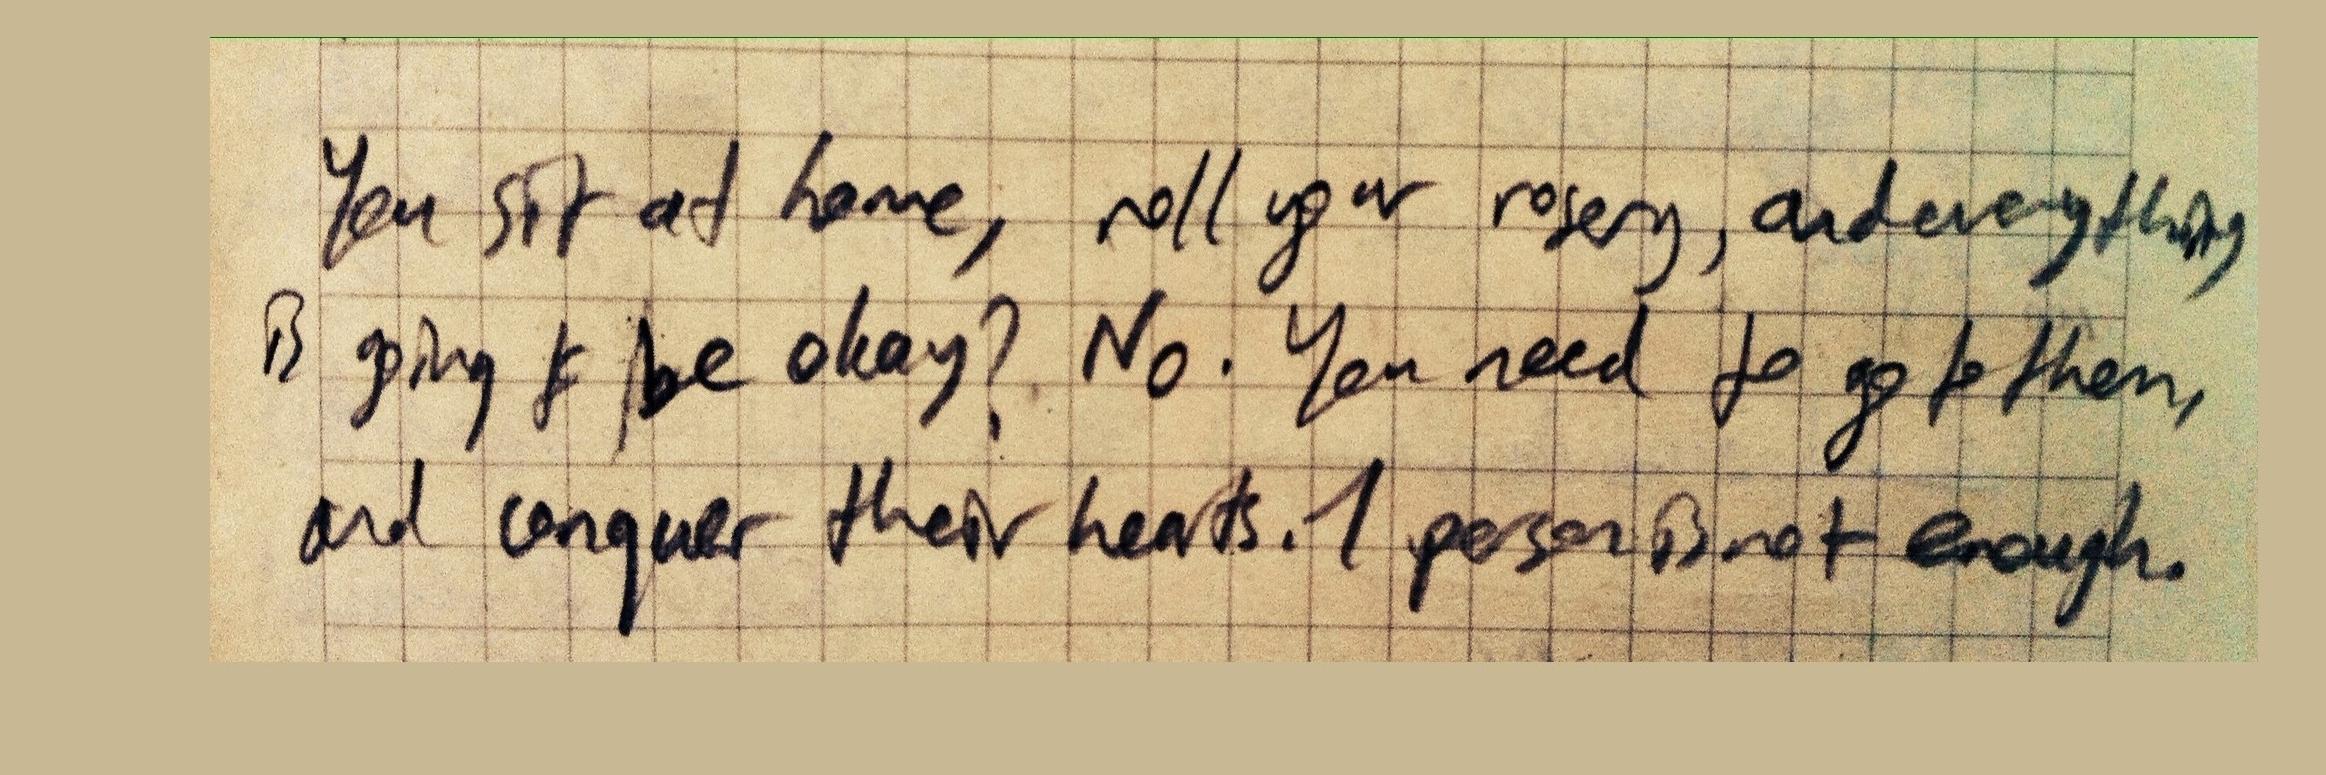 You sit at home, roll your rosery, and everything
is going to be okay? No. You need to go to them,
and conquer their hearts. 1 person is not enough.